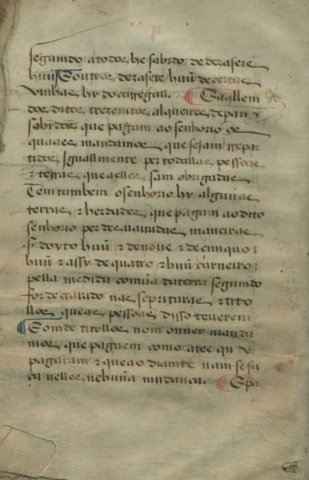 segundo a todos he sabido de dezasete
huũ. E outros dezasete huũ de certas
vinhas hy do corregall. E allem
dos ditos trezemtos alqueires de pam
sabidos que pagam ao senhorio os
quaaes mandamos que sejam repar
tidos Igualmente per todallas pessoas
e terras que a elles sam obrigadas
Tem tambem o senhorio hy algũas
terras e herdades que pagam ao dito
senhorio per desvairadas maneiras
s. doyto huũ e de noue e de cinquo
huũ e assy de quatro e huũ carneiro
pella medida comũa da terra segundo
for decrarado nas scprituras e tito
llos que as pessoas disso teuerem
E omde titollos nom ouuer manda
mos que paguem como atee qui
pagaram e que ao diamte nam se fa
ça nelles nehuũa mudança.